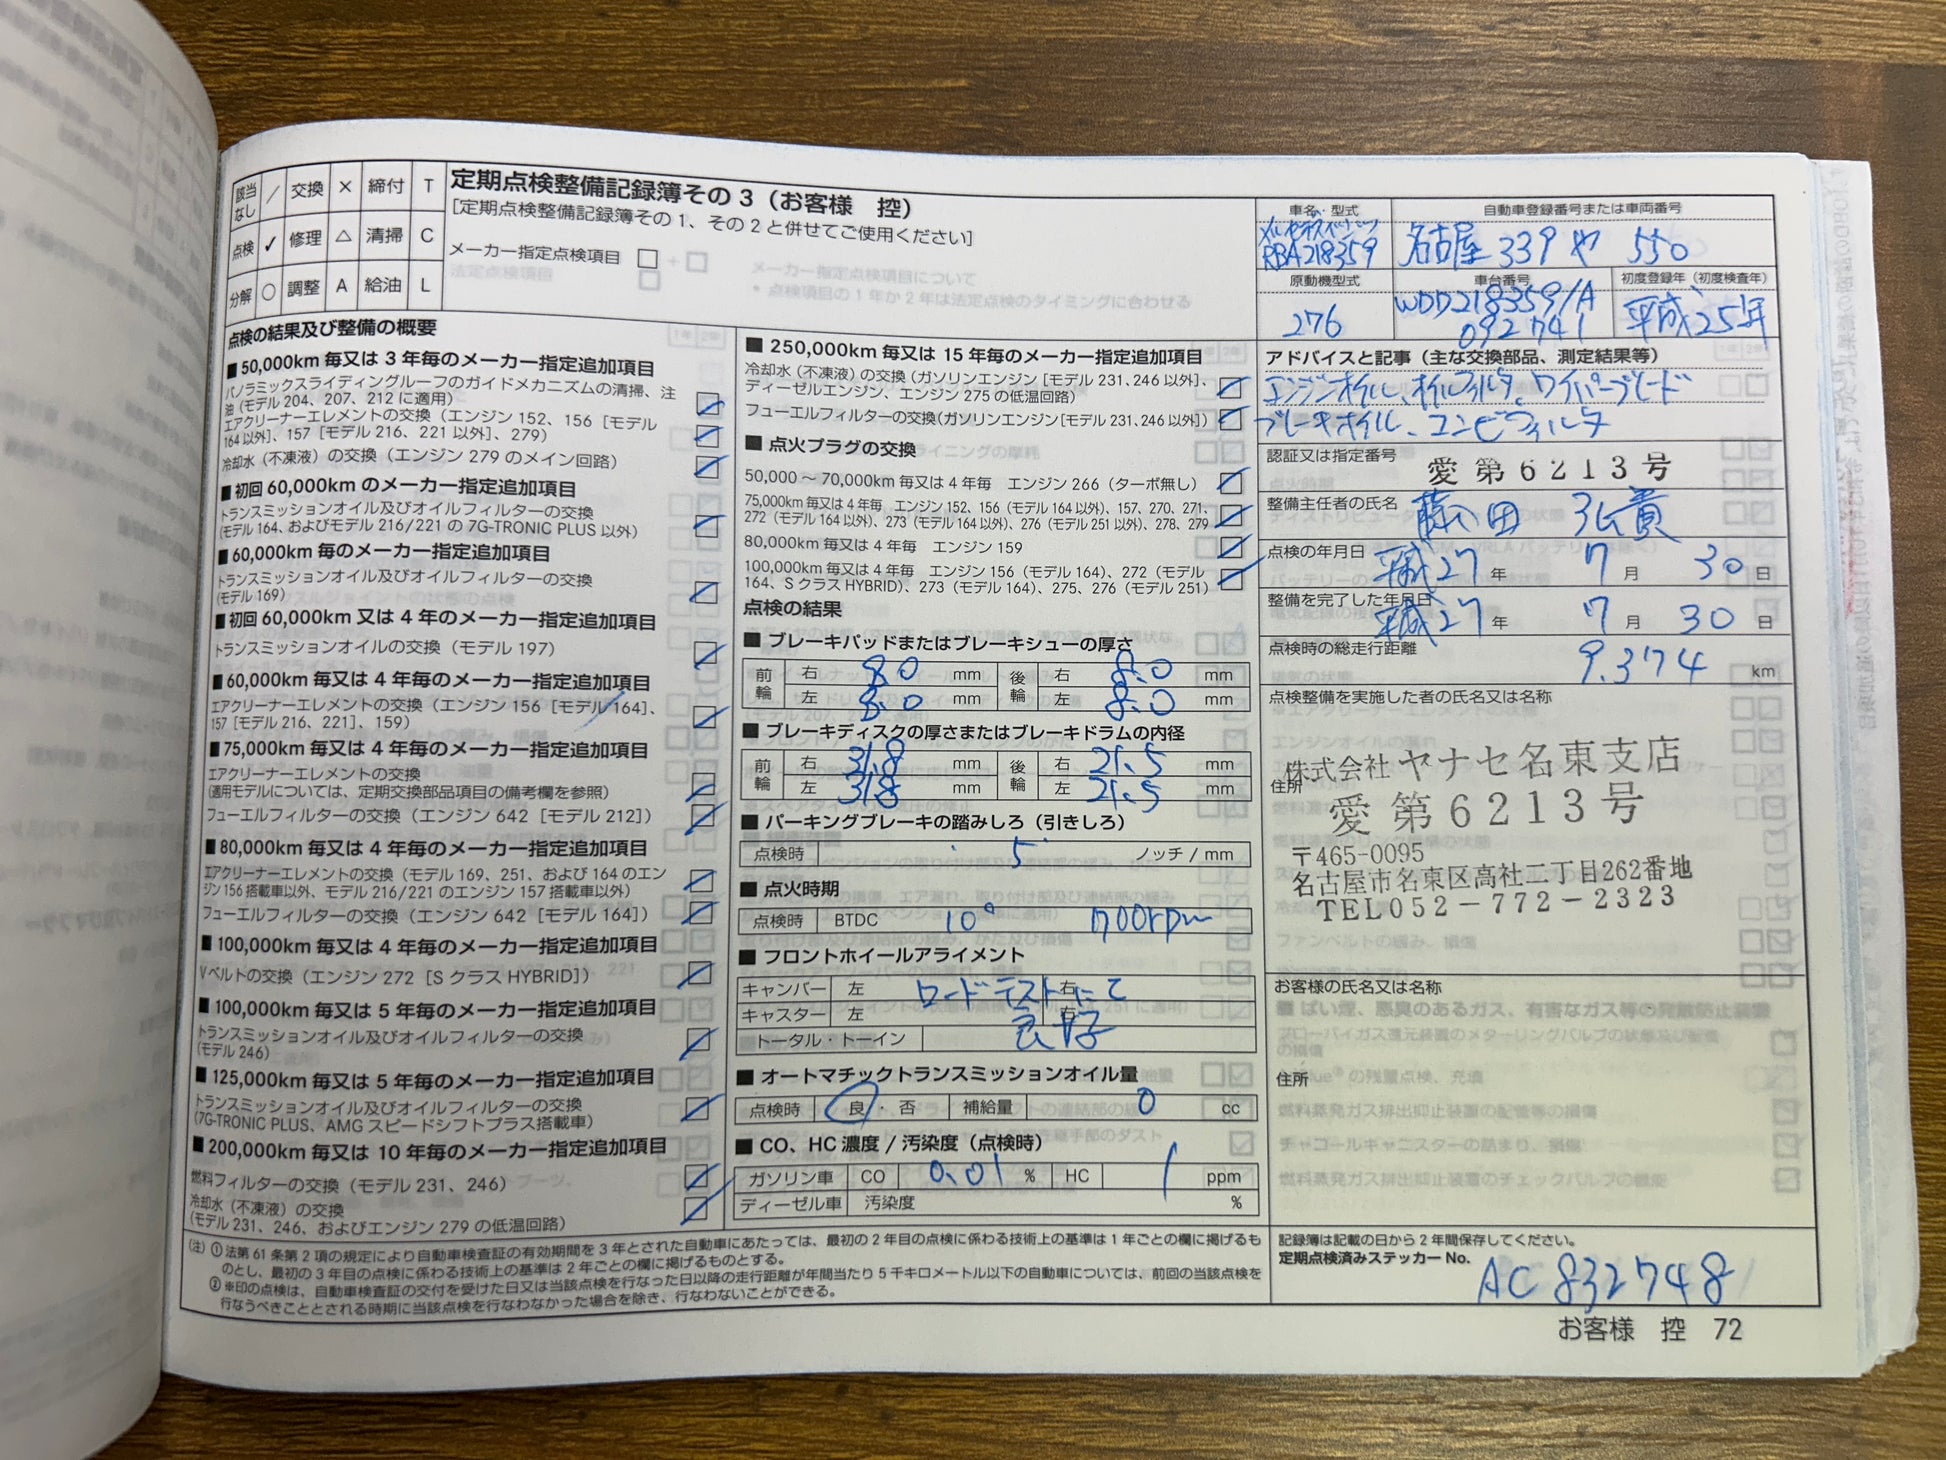 該当なし ／ 交換 × 締付 T
点検 ✓ 修理 △ 清掃 C
分解 ○ 調整 A 給油 L
定期点検整備記録簿その3（お客様 控）
[定期点検整備記録簿その1、その2と併せてご使用ください]
メーカー指定点検項目 □
車名・型式
メルセデスベンツ
RBA218359
自動車登録番号または車両番号
名古屋 339 や 550
原動機型式
276
車台番号
WDD2183591A
092741
初度登録年（初度検査年）
平成25年
点検の結果及び整備の概要
■ 50,000km 毎又は 3 年毎のメーカー指定追加項目
パノラミックスライディングルーフのガイドメカニズムの清掃、注
油（モデル 204、207、212 に適用）
エアクリーナーエレメントの交換（エンジン 152、156［モデル
164 以外］、157［モデル 216、221 以外］、279）
冷却水（不凍液）の交換（エンジン 279 のメイン回路）
■ 初回 60,000km のメーカー指定追加項目
トランスミッションオイル及びオイルフィルターの交換
（モデル 164、およびモデル 216/221 の 7G-TRONIC PLUS 以外）
■ 60,000km 毎のメーカー指定追加項目
トランスミッションオイル及びオイルフィルターの交換
（モデル 169）
■ 初回 60,000km 又は 4 年毎のメーカー指定追加項目
トランスミッションオイルの交換（モデル 197）
■ 60,000km 毎又は 4 年毎のメーカー指定追加項目
エアクリーナーエレメントの交換（エンジン 156［モデル 164］、
157［モデル 216、221］、159）
■ 75,000km 毎又は 4 年毎のメーカー指定追加項目
エアクリーナーエレメントの交換
（適用モデルについては、定期交換部品項目の備考欄を参照）
フューエルフィルターの交換（エンジン 642［モデル 212］）
■ 80,000km 毎又は 4 年毎のメーカー指定追加項目
エアクリーナーエレメントの交換（モデル 169、251、および 164 のエン
ジン 156 搭載車以外、モデル 216/221 のエンジン 157 搭載車以外）
フューエルフィルターの交換（エンジン 642［モデル 164］）
■ 100,000km 毎又は 4 年毎のメーカー指定追加項目
V ベルトの交換（エンジン 272［S クラス HYBRID］）
■ 100,000km 毎又は 5 年毎のメーカー指定追加項目
トランスミッションオイル及びオイルフィルターの交換
（モデル 246）
■ 125,000km 毎又は 5 年毎のメーカー指定追加項目
トランスミッションオイル及びオイルフィルターの交換
（7G-TRONIC PLUS、AMG スピードシフトプラス搭載車）
■ 200,000km 毎又は 10 年毎のメーカー指定追加項目
燃料フィルターの交換（モデル 231、246）
冷却水（不凍液）の交換
（モデル 231、246、およびエンジン 279 の低温回路）
■ 250,000km 毎又は 15 年毎のメーカー指定追加項目
冷却水（不凍液）の交換（ガソリンエンジン［モデル 231、246 以外］、
ディーゼルエンジン、エンジン 275 の低温回路）
フューエルフィルターの交換（ガソリンエンジン［モデル 231、246 以外］）
■ 点火プラグの交換
50,000 ～ 70,000km 毎又は 4 年毎 エンジン 266（ターボ無し）
75,000km 毎又は 4 年毎 エンジン 152、156（モデル 164 以外）、157、270、271、
272（モデル 164 以外）、273（モデル 164 以外）、276（モデル 251 以外）、278、279
80,000km 毎又は 4 年毎 エンジン 159
100,000km 毎又は 4 年毎 エンジン 156（モデル 164）、272（モデル
164、S クラス HYBRID）、273（モデル 164）、275、276（モデル 251）
点検の結果
■ ブレーキパッドまたはブレーキシューの厚さ
前輪 右 8.0 mm 後輪 右 8.0 mm
左 8.0 mm 左 8.0 mm
■ ブレーキディスクの厚さまたはブレーキドラムの内径
前輪 右 31.8 mm 後輪 右 21.5 mm
左 31.8 mm 左 21.5 mm
■ パーキングブレーキの踏みしろ（引きしろ）
点検時 5 ノッチ / mm
■ 点火時期
点検時 BTDC 10° 700rpm
■ フロントホイールアライメント
キャンバー 左 右
キャスター 左 右
トータル・トーイン
ロードテストにて
良好
■ オートマチックトランスミッションオイル量
点検時 良 ・ 否 補給量 0 cc
■ CO、HC 濃度 / 汚染度（点検時）
ガソリン車 CO 0.01 % HC 1 ppm
ディーゼル車 汚染度 %
アドバイスと記事（主な交換部品、測定結果等）
エンジンオイル、オイルフィルタ、ワイパーブレード
ブレーキオイル、コンビフィルタ
認証又は指定番号
愛 第 6 2 1 3 号
整備主任者の氏名 藤田 弘貴
点検の年月日 平成27 年 7 月 30 日
整備を完了した年月日 平成27 年 7 月 30 日
点検時の総走行距離 9,374 km
点検整備を実施した者の氏名又は名称
株式会社 ヤナセ名東支店
住所
愛 第 6 2 1 3 号
〒465-0095
名古屋市名東区高社二丁目262番地
TEL052-772-2323
お客様の氏名又は名称
住所
（注）① 法第 61 条第 2 項の規定により自動車検査証の有効期間を 3 年とされた自動車にあたっては、最初の 2 年目の点検に係わる技術上の基準は 1 年ごとの欄に掲げるも
のとし、最初の 3 年目の点検に係わる技術上の基準は 2 年ごとの欄に掲げるものとする。
② ※印の点検は、自動車検査証の交付を受けた日又は当該点検を行なった日以降の走行距離が年間当たり 5 千キロメートル以下の自動車については、前回の当該点検を
行なうべきこととされる時期に当該点検を行なわなかった場合を除き、行なわないことができる。
記録簿は記載の日から 2 年間保存してください。
定期点検済みステッカー No.
AC 832748
お客様 控 72